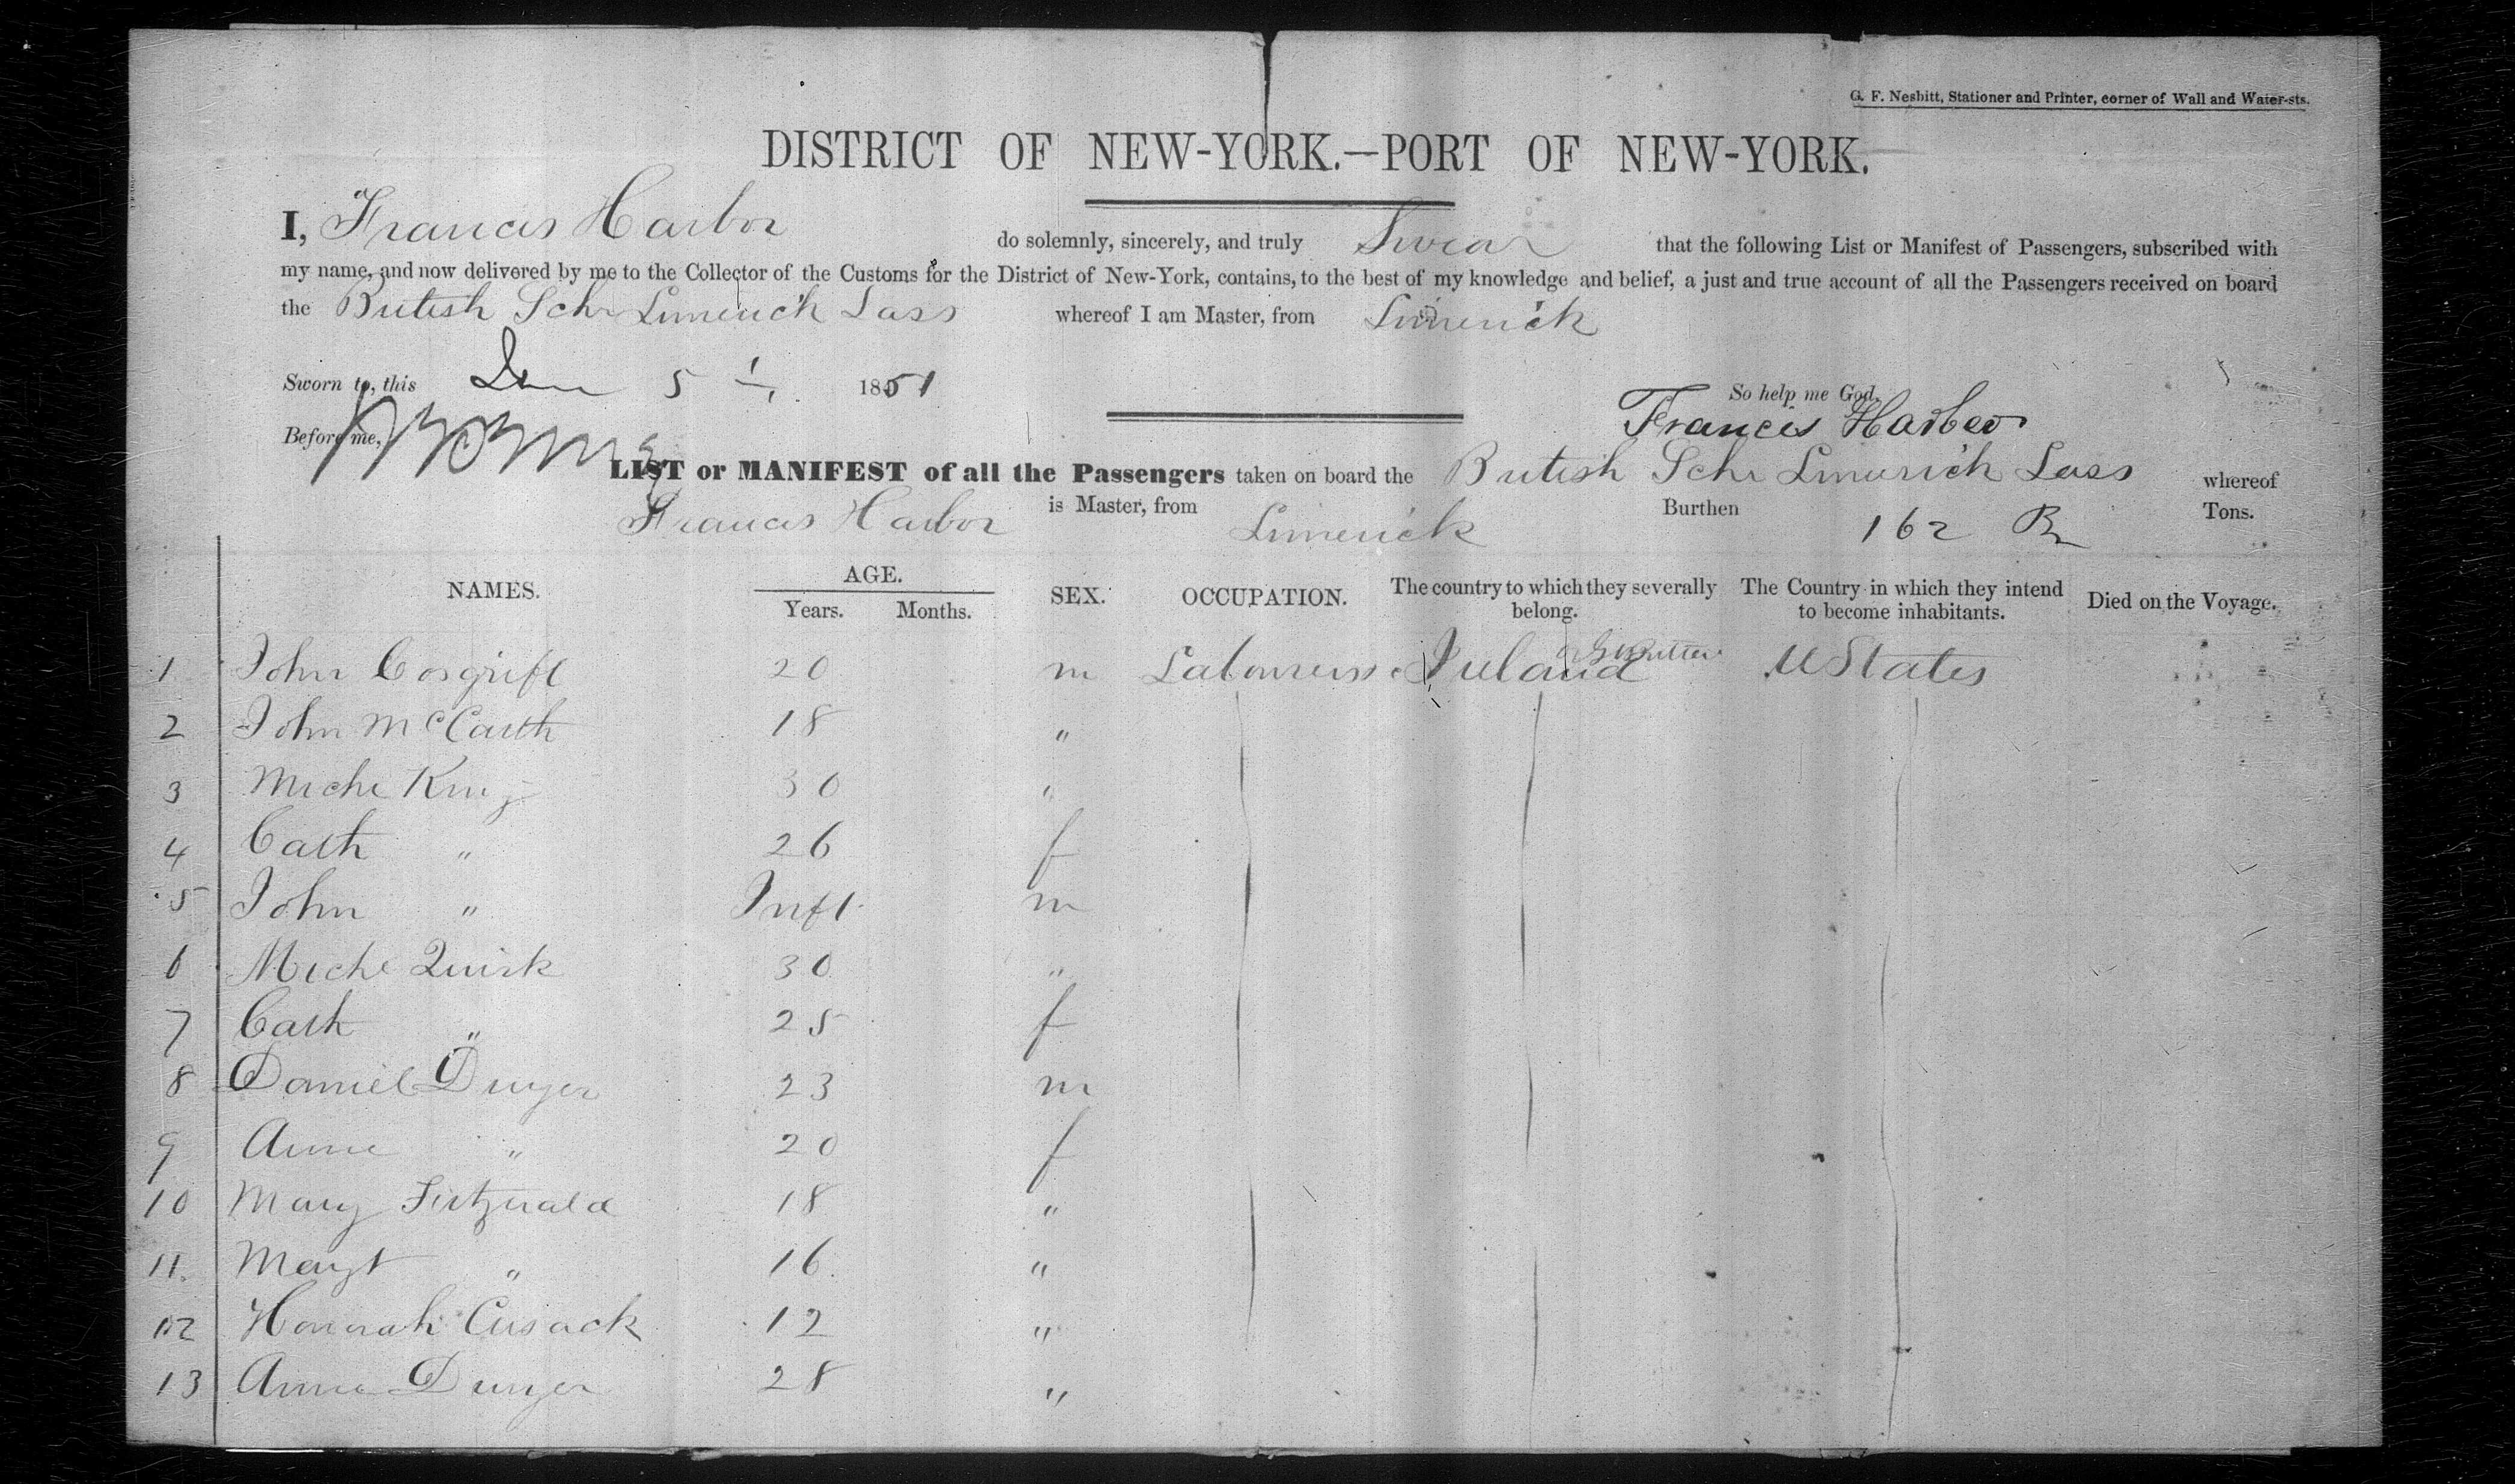 G. F. Nesbitt, Stationer and Printer, corner of Wall and Water-sts.
DISTRICT OF NEW-YORK.—PORT OF NEW-YORK.
I, Francis Harbor do solemnly, sincerely, and truly Swear that the following List or Manifest of Passengers, subscribed with
my name, and now delivered by me to the Collector of the Customs for the District of New-York, contains, to the best of my knowledge and belief, a just and true account of all the Passengers received on board
the British Schr Limerick Lass whereof I am Master, from Limerick
Sworn to, this 5 1851
So help me God,
Before me,
Francis Harbor
LIST or MANIFEST of all the Passengers taken on board the British Schr Limerick Lass whereof
Francis Harbor is Master, from Limerick Burthen 162 Tons.
NAMES. AGE. Years. Months. SEX. OCCUPATION. The country to which they severally belong. The Country in which they intend to become inhabitants. Died on the Voyage.
1 John Cosgriff 20 m Labourers Ireland U States
2 John McCarth 18 "
3 Miche King 30 "
4 Cath " 26 f
5 John " Inft m
6 Miche Quirk 30 "
7 Cath " 25 f
8 Daniel Dwyer 23 m
9 Anne " 20 f
10 Mary Fitzgerald 18 "
11. Margt " 16 "
12 Honorah Cusack 12 "
13 Anne Dwyer 28 "